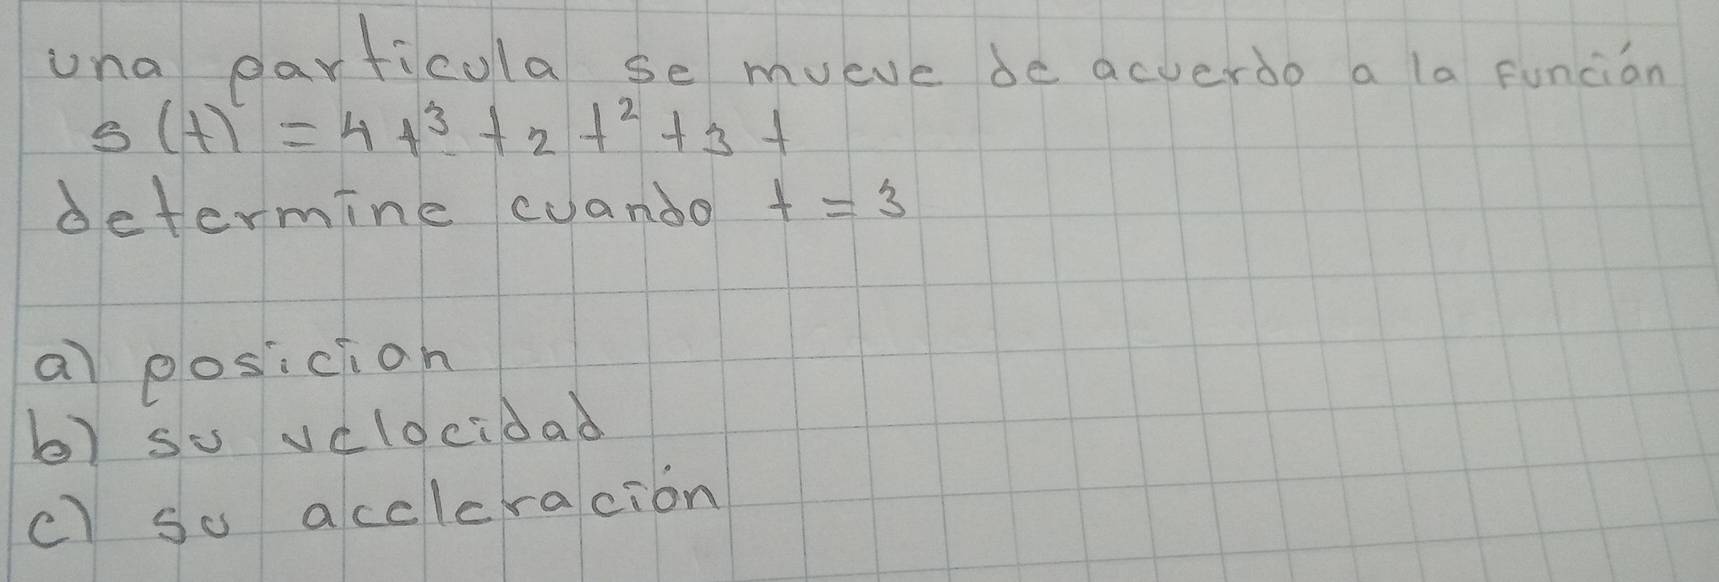 una particula se mueve de acuerdo a la función
s(t) = 4t³ + 2t² + 3t
determine cuando t = 3
a) posicion
b) su velocidad
c) su aceleración